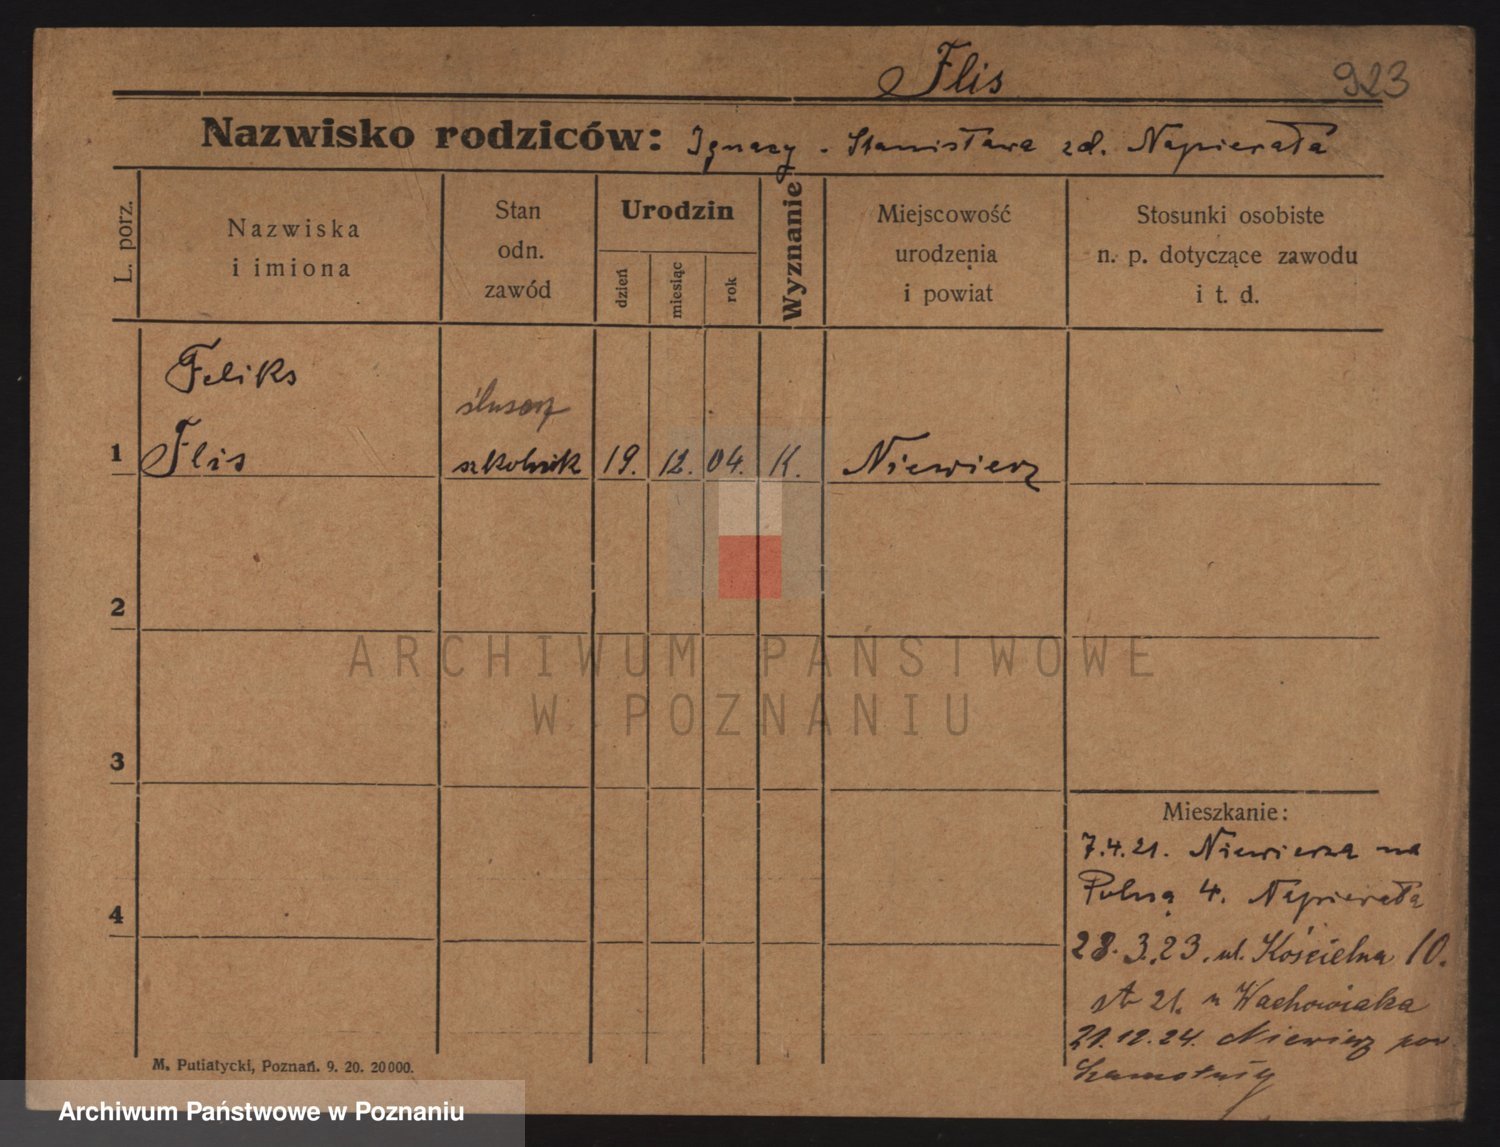 Flis 923
Nazwisko rodziców: Ignacy - Stanisława zd. Napierała
L. porz.
Nazwiska
i imiona
Stan
odn.
zawód
Urodzin
dzień
miesiąc
rok
Wyznanie
Miejscowość
urodzenia
i powiat
Stosunki osobiste
n. p. dotyczące zawodu
i t. d.
Feliks
ślusarz
1 Flis szkolnik 19. 12. 04. K. Niewierz
2
ARCHIWUM PAŃSTWOWE
W POZNANIU
3
Mieszkanie:
7.4.21. Niewierza na
Polną 4. Napierała
4
28.3.23. ul. Kościelna 10.
st 21. u Wachowiaka
21.12.24. Niewierz pow.
Szamotuły
M. Putiatycki, Poznań. 9. 20. 20000.
Archiwum Państwowe w Poznaniu